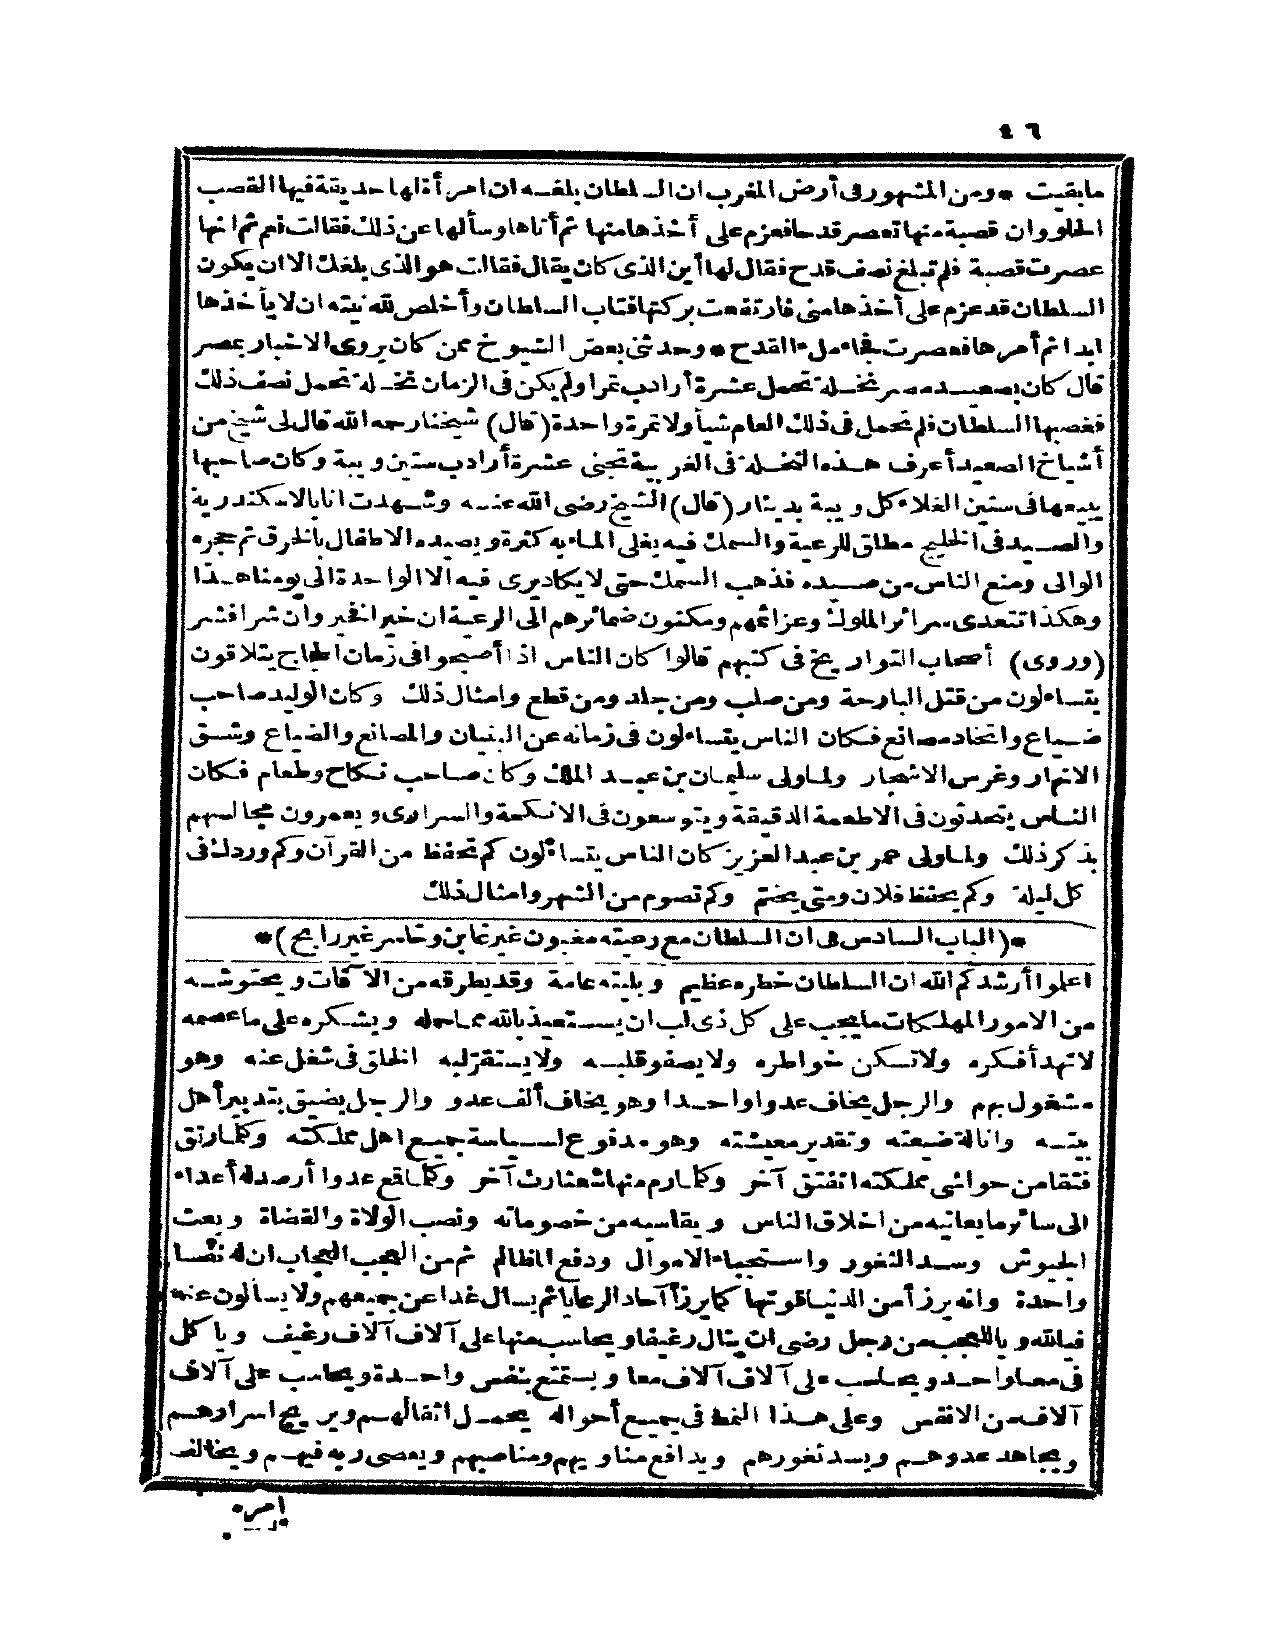 ٤٦
ما بقيت * ومن المشهور في أرض المغرب ان السلطان بلغه ان امرأة لها حديقة فيها القصب
الحلو وان قصبة منها تعصر قدحا فعزم على أخذها منها ثم أتاها وسألها عن ذلك فقالت نعم ثم انها
عصرت قصبة فلم تبلغ نصف قدح فقال لها أين الذي كان يقال فقالت هو الذي بلغك الا ان يكون
السلطان قد عزم على أخذها مني فارتفعت بركتها فتاب السلطان وأخلص لله نيته ان لا يأخذها
ابدا ثم أمرها فعصرت فجاء ملء القدح * وحدثني بعض الشيوخ ممن كان يروي الاخبار بمصر
قال كان بصعيد مصر نخلة تحمل عشرة أرادب تمرا ولم يكن في الزمان نخلة تحمل نصف ذلك
فغصبها السلطان فلم تحمل في ذلك العام شيأ ولا تمرة واحدة (قال) شيخنا رحمه الله قال لي شيخ من
أشياخ الصعيد أعرف هذه النخلة في الغربية تجني عشرة أرادب ستين ويبة وكان صاحبها
يبيعها في سنين الغلاء كل ويبة بدينار (قال) الشيخ رضي الله عنه وشهدت انا بالاسكندرية
والصيد في الخليج مطلق للرعية والسمك فيه يغلي الماء به كثرة ويصيده الاطفال بالخرق ثم حجره
الوالي ومنع الناس من صيده فذهب السمك حتى لا يكاد يرى فيه الا الواحدة الى يومنا هذا
وهكذا تتعدى سرائر الملوك وعزائمهم ومكنون ضمائرهم الى الرعية ان خيرا فخير وان شرا فشر
(وروى) أصحاب التواريخ في كتبهم قالوا كان الناس اذا أصبحوا في زمان الحجاج يتلاقون
يتساءلون من قتل البارحة ومن صلب ومن جلد ومن قطع وامثال ذلك وكان الوليد صاحب
ضياع واتخاذ مصانع فكان الناس يتساءلون في زمانه عن البنيان والمصانع والضياع وشق
الانهار وغرس الاشجار ولما ولى سليمان بن عبد الملك وكان صاحب نكاح وطعام فكان
الناس يتحدثون في الاطعمة الدقيقة ويتوسعون في الانكحة والسراري ويعمرون مجالسهم
بذكر ذلك ولما ولى عمر بن عبد العزيز كان الناس يتساءلون كم تحفظ من القرآن وكم وردك في
كل ليلة وكم يحفظ فلان ومتى يختم وكم تصوم من الشهر وامثال ذلك
*(الباب السادس في ان السلطان مع رعيته مغبون غير غابن وخاسر غير رابح)*
اعلموا أرشدكم الله ان السلطان خطره عظيم وبليته عامة وقد يطرقه من الآفات ويحتوشه
من الامور المهلكات ما يجب على كل ذي لب ان يستعيذ بالله مما حمله ويشكره على ما عصمه
لا تهدأ فكره ولا تسكن خواطره ولا يصفو قلبه ولا يستقر لبه الخلق في شغل عنه وهو
مشغول بهم والرجل يخاف عدوا واحدا وهو يخاف ألف عدو والرجل يضيق بتدبير أهل
بيته وانالة ضيعته وتقدير معيشته وهو مدفوع لسياسة جميع اهل مملكته وكلما رتق
فتقا من حواشي مملكته انفتق آخر وكلما رم منها شعثا رث آخر وكلما قمع عدوا أرصد له أعداء
الى سائر ما يعانيه من اخلاق الناس ويقاسيه من خصوماته ونصب الولاة والقضاة وبعث
الجيوش وسد الثغور واستجباء الاموال ودفع المظالم ثم من العجب العجاب ان له نفسا
واحدة وانه يرزأ من الدنيا قوتها كما يرزأ آحاد الرعايا ثم يسأل غدا عن جميعهم ولا يسألون عنه
فيالله ويا للعجب من رجل رضي ان ينال رغيفا ويحاسب منها على آلاف آلاف رغيف ويأكل
في معا واحد ويحاسب على آلاف آلاف معا ويستمتع بنفس واحدة ويحاسب على آلاف
آلاف من الانفس وعلى هذا النمط في جميع أحواله يحمل اثقالهم ويريح اسرارهم
ويجاهد عدوهم ويسد ثغورهم ويدافع مناويهم ومناصبهم ويعصى ربه فيهم ويخالف
امره